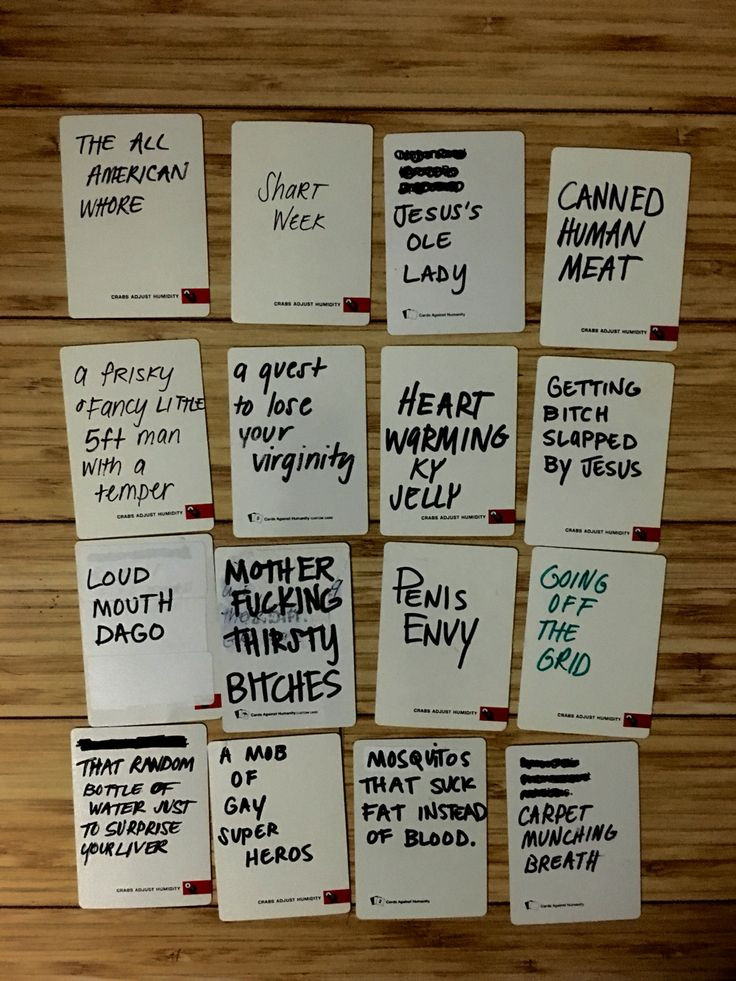 THE ALL
AMERICAN
WHORE
CRABS ADJUST HUMIDITY
Shart
Week
CRABS ADJUST HUMIDITY
JESUS'S
OLE
LADY
Cards Against Humanity
CANNED
HUMAN
MEAT
CRABS ADJUST HUMIDITY
a frisky
& Fancy Little
5ft man
with a
temper
CRABS ADJUST HUMIDITY
a quest
to lose
your
virginity
Cards Against Humanity CUSTOM CARD
HEART
WARMING
KY
JELLY
CRABS ADJUST HUMIDITY
GETTING
BITCH
SLAPPED
BY JESUS
CRABS ADJUST HUMIDITY
LOUD
MOUTH
DAGO
MOTHER
FUCKING
THIRSTY
BITCHES
Cards Against Humanity CUSTOM CARD
PENIS
ENVY
CRABS ADJUST HUMIDITY
GOING
OFF
THE
GRID
CRABS ADJUST HUMIDITY
THAT RANDOM
BOTTLE OF
WATER JUST
TO SURPRISE
YOUR LIVER
CRABS ADJUST HUMIDITY
A MOB
OF
GAY
SUPER
HEROS
CRABS ADJUST HUMIDITY
MOSQUITOS
THAT SUCK
FAT INSTEAD
OF BLOOD.
Cards Against Humanity
CARPET
MUNCHING
BREATH
Cards Against Humanity